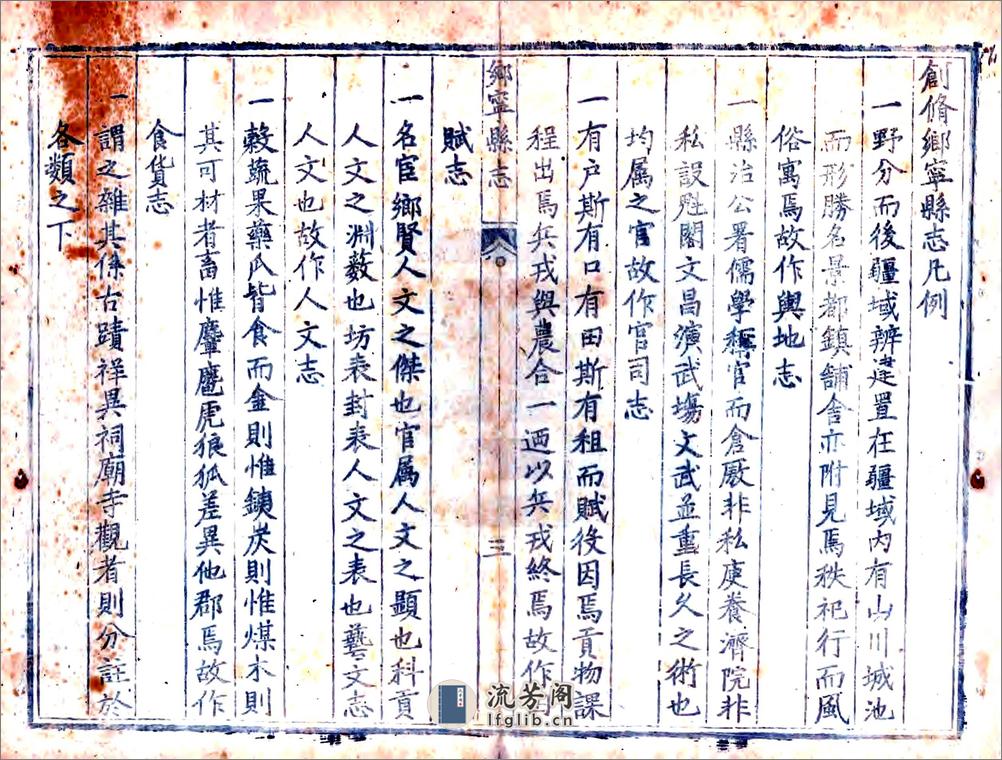 創脩鄉寧縣志凡例
一野分而後疆域辨建置在疆域內有山川城池
而形勝名景都鎮舖舍亦附見焉秩祀行而風
俗寓焉故作輿地志
一縣治公署儒學稱官而倉厫非私庾養濟院非
私設魁閣文昌演武塲文武並重長久之術也
均属之官故作官司志
一有户斯有口有田斯有租而賦役因焉貢物課
程出焉兵戎與農合一迺以兵戎終焉故作
賦志
鄉寧縣志
三
一名宦鄉賢人文之傑也官属人文之顯也科貢
人文之淵藪也坊表封表人文之表也藝文志
人文也故作人文志
一穀蔬果藥瓜皆食而金則惟鐵炭則惟煤木則
其可材者畜惟麞麅虎狼狐差異他郡焉故作
食貨志
一謂之雜其係古蹟祥異祠廟寺觀者則分註於
各類之下
流芳阁
lfglib.cn